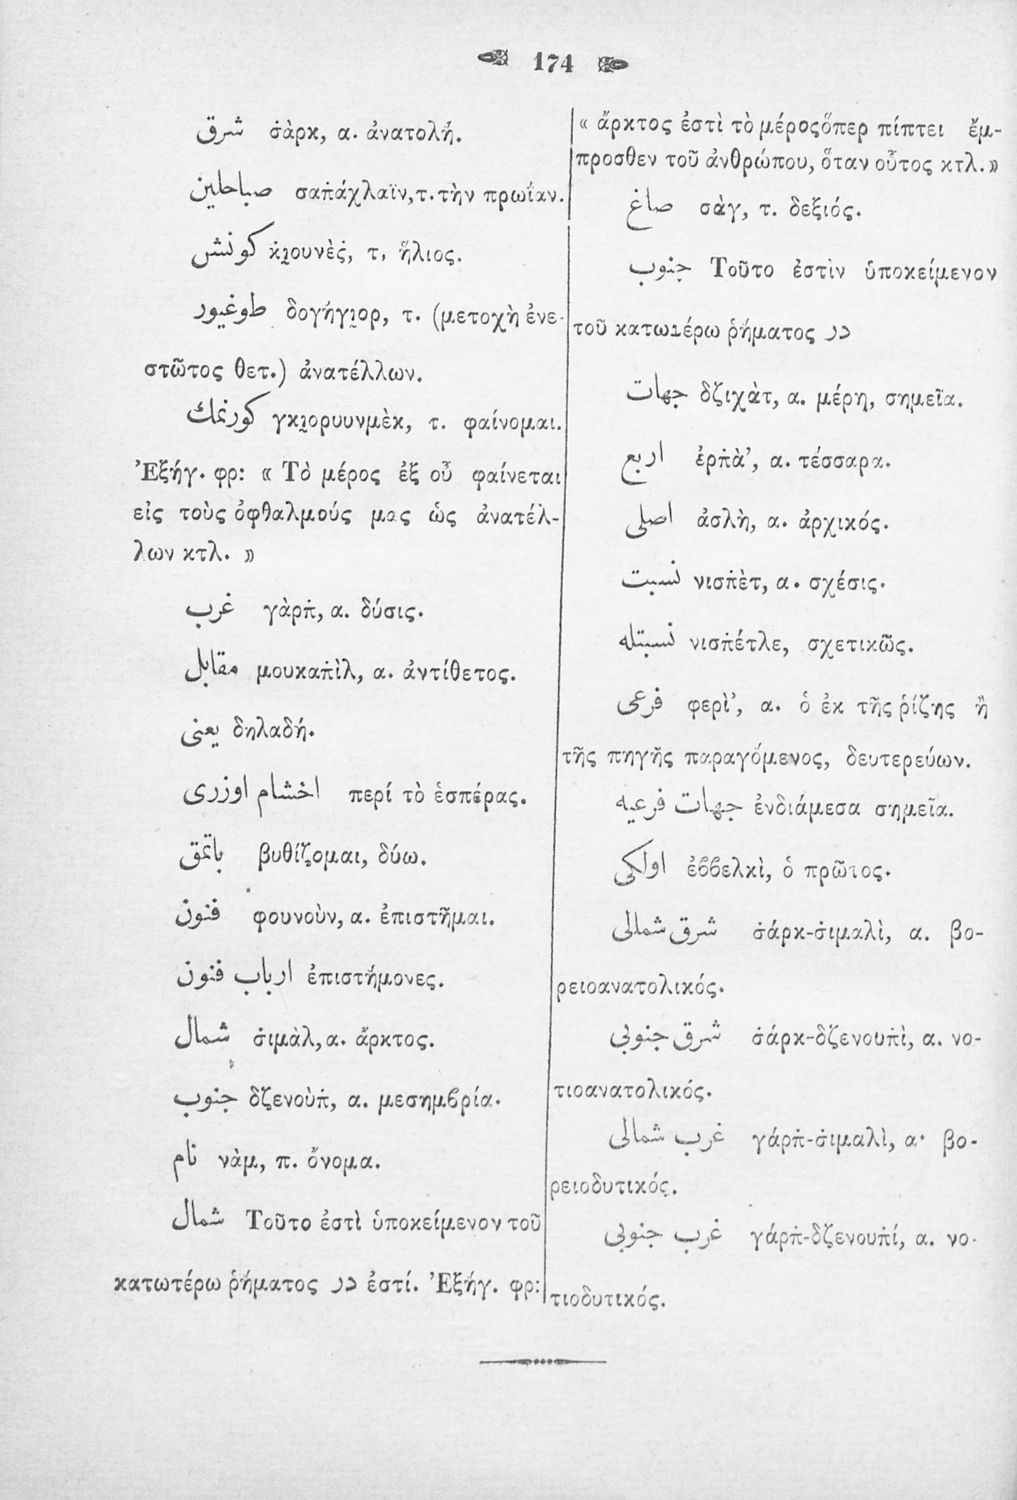 174
شرق σ̇ὰρκ, α. ἀνατολή.
صباحلين σαπ̇άχλαϊν, τ. τὴν πρωΐαν.
كونش κ̇ι̯ουνὲς̇, τ, ἥλιος.
طوغيور δογήγι̯ορ, τ. (μετοχὴ ἐνε-
στῶτος θετ.) ἀνατέλλων.
كورنمك γκι̯ορυυνμὲκ, τ. φαίνομαι.
Ἐξήγ. φρ: « Τὸ μέρος ἐξ οὗ φαίνεται
εἰς τοὺς ὀφθαλμούς μας ὡς ἀνατέλ-
λων κτλ. »
غرب γὰρπ̇, α. δύσις.
مقابل μουκαπ̇ὶλ, α. ἀντίθετος.
يعنى δηλαδή.
اخشام اوزرى περί τὸ ἑσπέρας.
باتمق βυθίζομαι, δύω.
فنون φουνοὺν, α. ἐπιστῆμαι.
ارباب فنون ἐπιστήμονες.
شمال σ̇ιμὰλ, α. ἄρκτος.
جنوب δζενοὺπ̇, α. μεσημβρία.
نام νὰμ, π. ὄνομα.
شمال Τοῦτο ἐστὶ ὑποκείμενον τοῦ
κατωτέρω ῥήματος در ἐστί. Ἐξήγ. φρ:
« ἄρκτος ἐστὶ τὸ μέρος ὅπερ πίπτει ἔμ-
προσθεν τοῦ ἀνθρώπου, ὅταν οὗτος κτλ.»
صاغ σὰγ, τ. δεξιός.
جنوب Τοῦτο ἐστὶν ὑποκείμενον
τοῦ κατωτέρω ῥήματος در
جهات δζιχὰτ, α. μέρη, σημεῖα.
اربع ἐρπ̇ὰ’, α. τέσσαρα.
اصلى ἀσλὴ, α. ἀρχικός.
نسبت νισπ̇ὲτ, α. σχέσις.
نسبتله νισπ̇έτλε, σχετικῶς.
فرعى φερὶ’, α. ὁ ἐκ τῆς ῥίζης ἢ
τῆς πηγῆς παραγόμενος, δευτερεύων.
جهات فرعيه ἐνδιάμεσα σημεῖα.
اولكى ἐββελκὶ, ὁ πρῶτος.
شرق شمالى σ̇άρκ-σ̇ιμαλὶ, α. βο-
ρειοανατολικός.
شرق جنوبى σ̇άρκ-δζενουπ̇ὶ, α. νο-
τιοανατολικός.
غرب شمالى γάρπ̇-σ̇ιμαλὶ, α· βο-
ρειοδυτικός.
غرب جنوبى γάρπ̇-δζενουπ̇ί, α. νο-
τιοδυτικός.